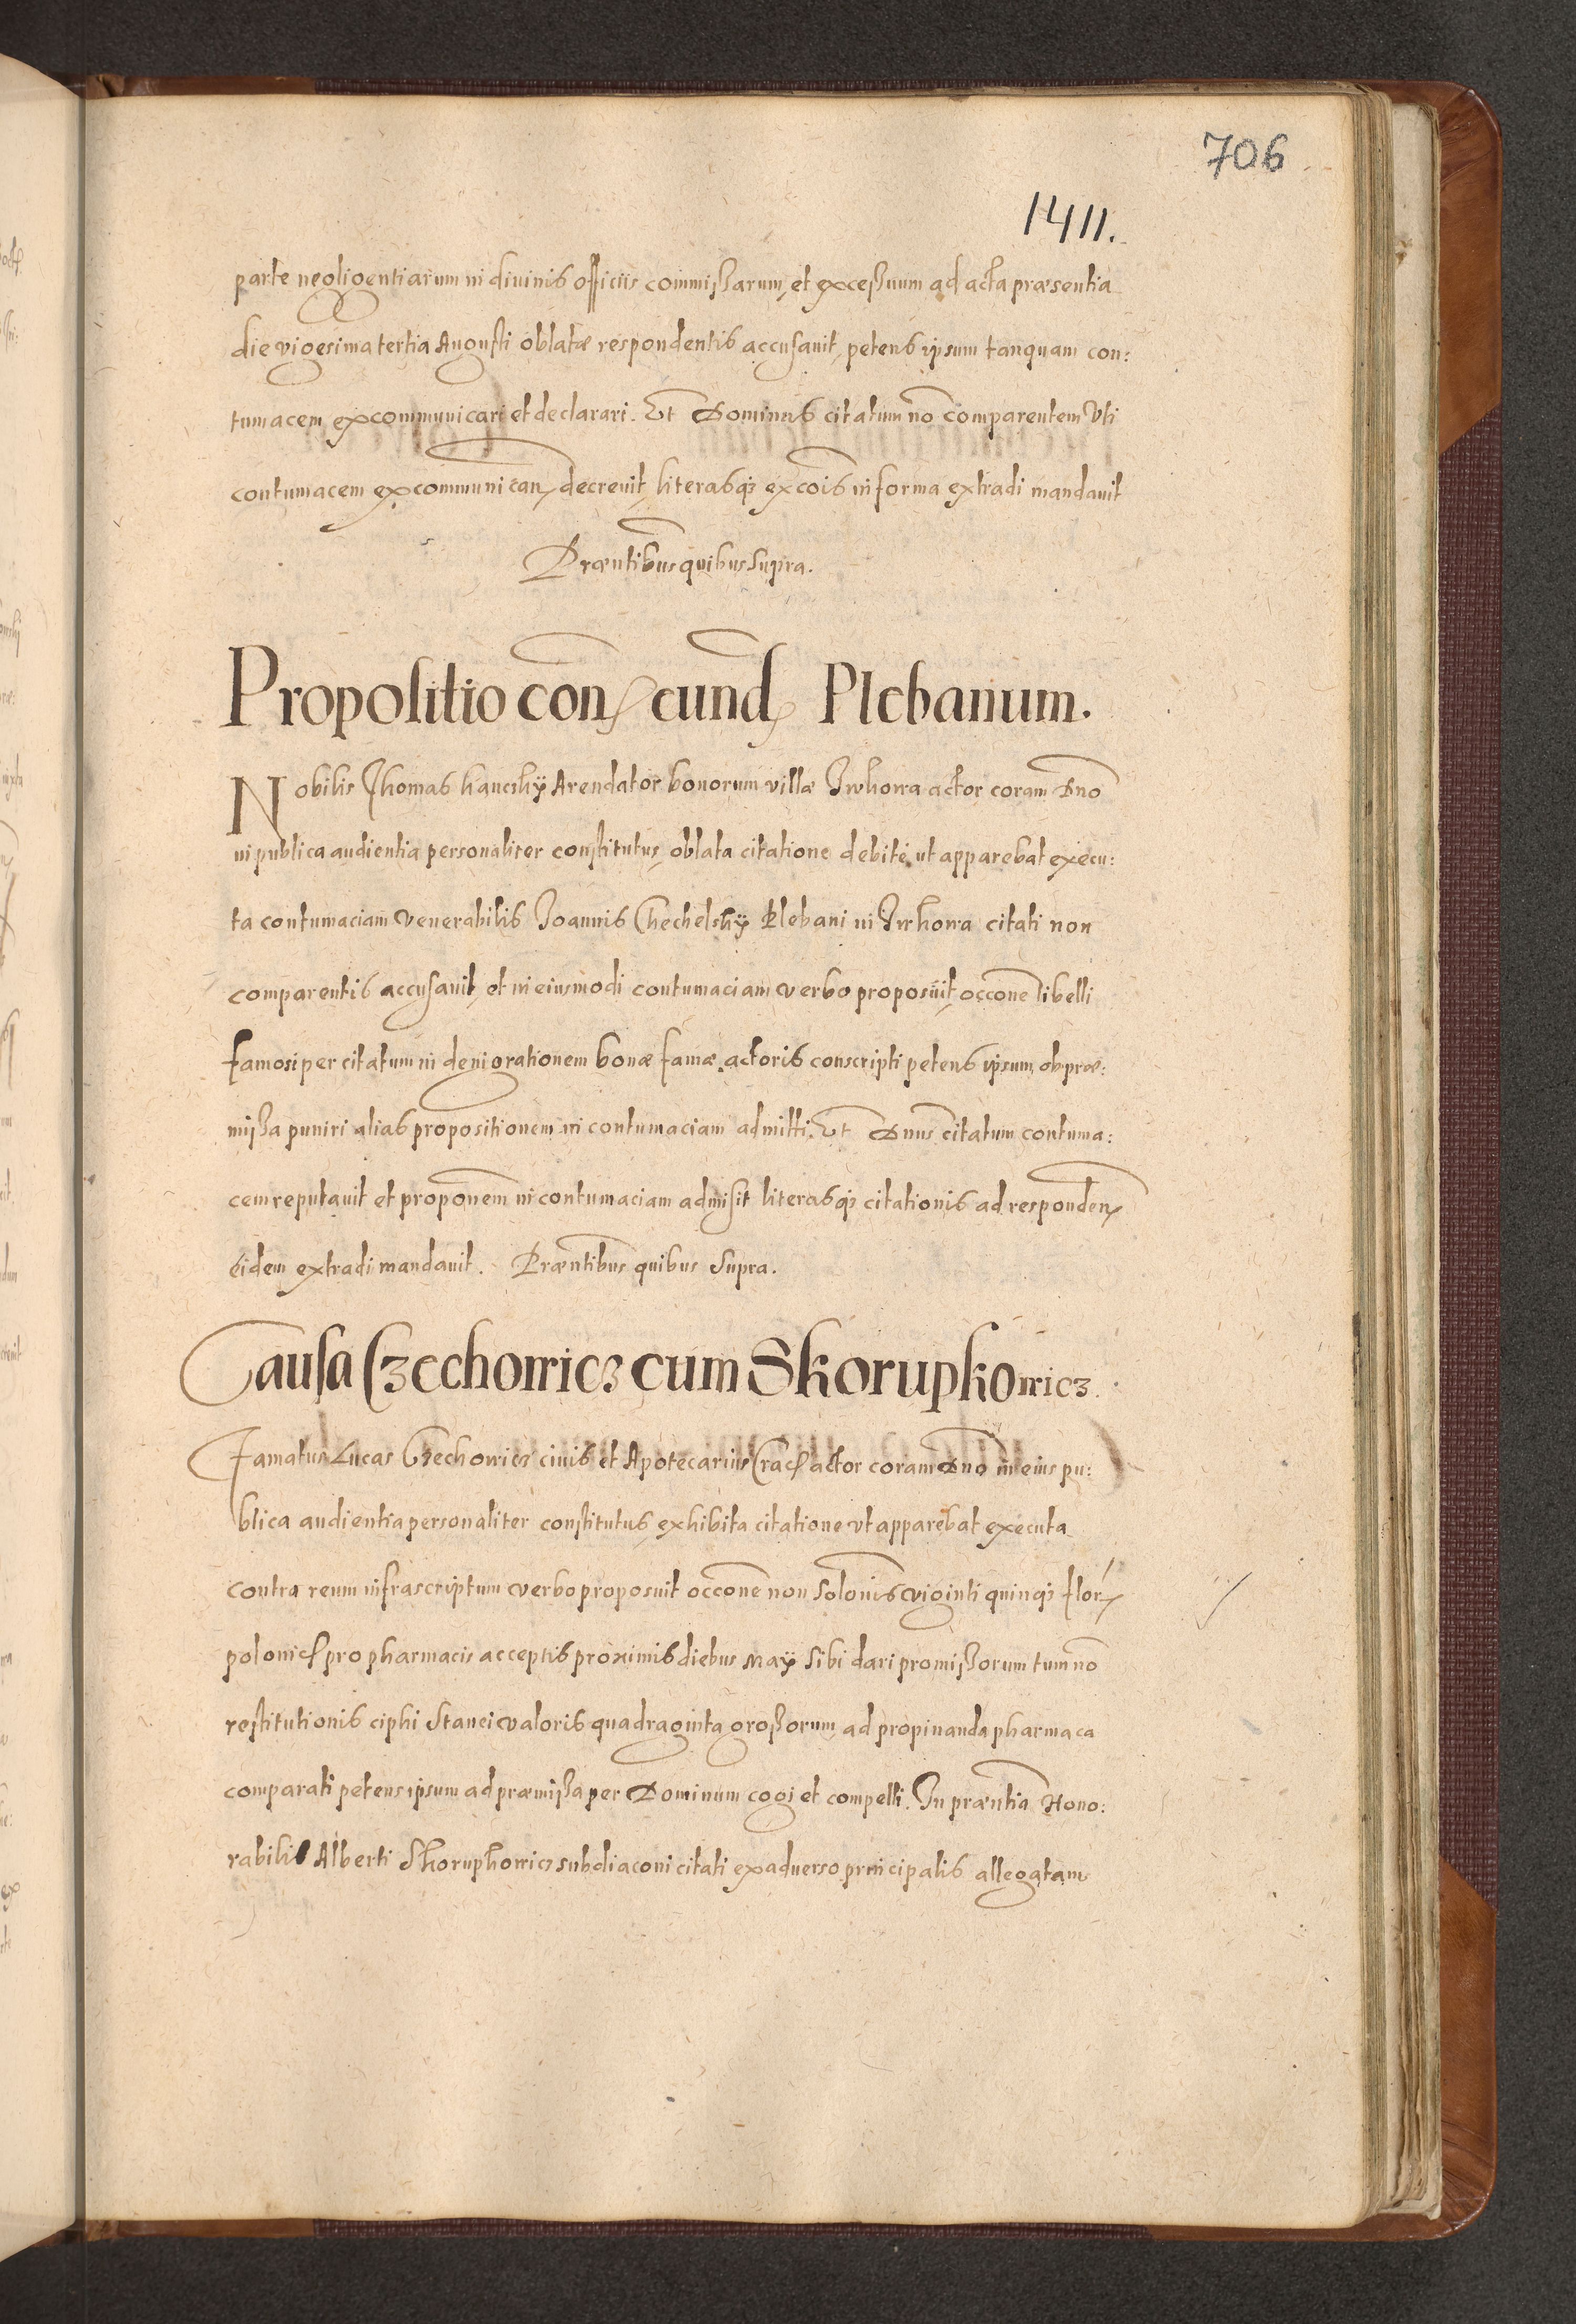 706
1411.
parte negligentiarum in diuinis officiis commißarum, et exceßuum ad acta præsentia
die vigesima tertia Augusti oblatæ respondentis accusauit, petens ipsum tanquam con:
tumacem excommunicari et declarari. Et Dominus citatum no comparentem Vti
contumacem excommunican decreuit, literasq3 excois in forma extradi mandauit
Præntibus quibus supra.
Propositio con eund Plebanum.
Nobilis Thomas hanczky Arendator bonorum villæ actor coram Dno
in publica audientia personaliter constitutus, oblata citatione debitè, ut apparebat execu:
ta contumaciam Venerabilis Joannis Chechelsky Plebani in citati non
comparentis accusauit, et in eiusmodi contumaciam verbo proposuit, occone libelli
famosi per citatum in denigrationem bonæ famæ actoris conscripti petens ipsum ob præ:
mißa puniri alias propositionem in contumaciam admitti. Et Dnus citatum contuma:
cem reputauit et proponem in contumaciam admisit literasq3 citationis ad responden
eidem extradi mandauit. Præntibus quibus Supra.
Causa Czechowicz cum Skorupkowicz.
Famatus Lucas Czechowicz ciuis et Apotecarius Crac actor coram Dno in eius pu:
blica audientia personaliter constitutus, exhibita citatione vt apparebat executa
contra reum infrascriptum verbo proposuit occone non solonis viginti quinq3 flor
polonic pro pharmacis acceptis proximis diebus Maÿ sibi dari promißorum tum no
restitutionis ciphi Stanei valoris quadraginta großorum ad propinanda pharmaca
comparati petens ipsum ad præmißa per Dominum cogi et compelli. In præntia Hono:
rabilis Alberti Skorupkowicz subdiaconi citati ex aduerso principalis allegatam